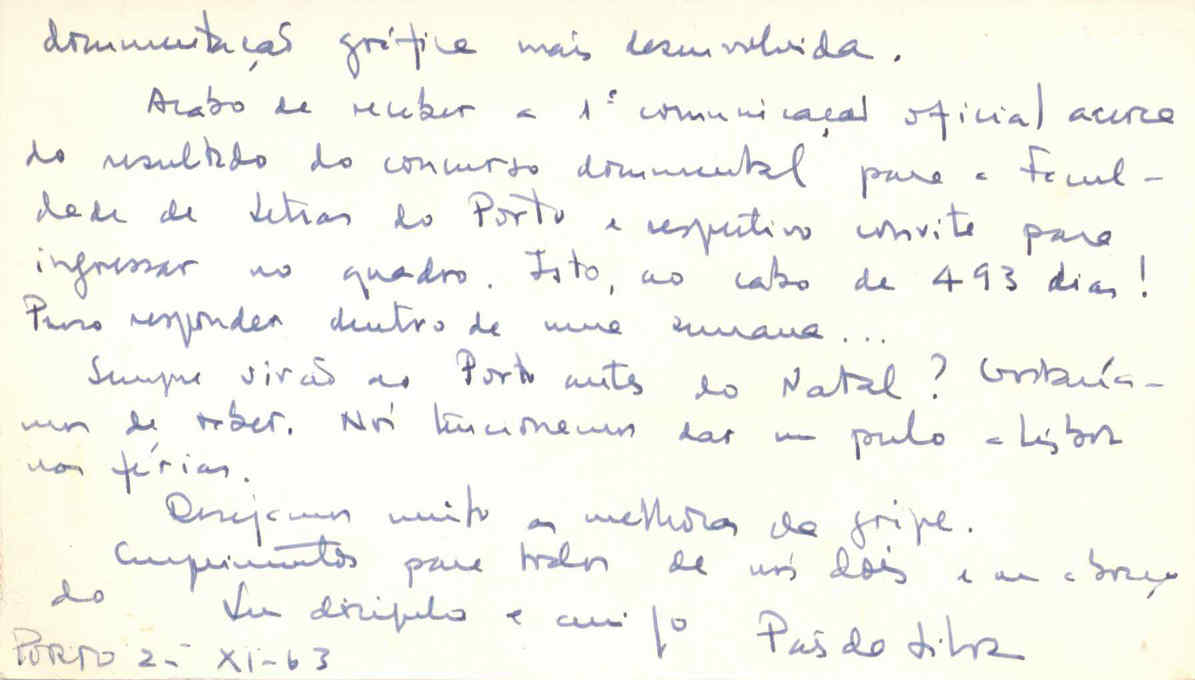 documentação gráfica mais desenvolvida.
Acabo de receber a 1ª comunicação oficial acerca
do resultado do concurso documental para a Facul-
dade de Letras do Porto e respectivo convite para
ingressar no quadro. Isto, ao cabo de 493 dias!
Posso responder dentro de uma semana...
Sempre virão ao Porto antes do Natal? Gostaría-
mos de saber. Nós tencionamos dar um pulo a Lisboa
nas férias.
Desejamos muito as melhoras da gripe.
Cumprimentos para todos de nós dois e um abraço
do Seu discípulo e amigo Pais da Silva
PORTO 2- XI-63